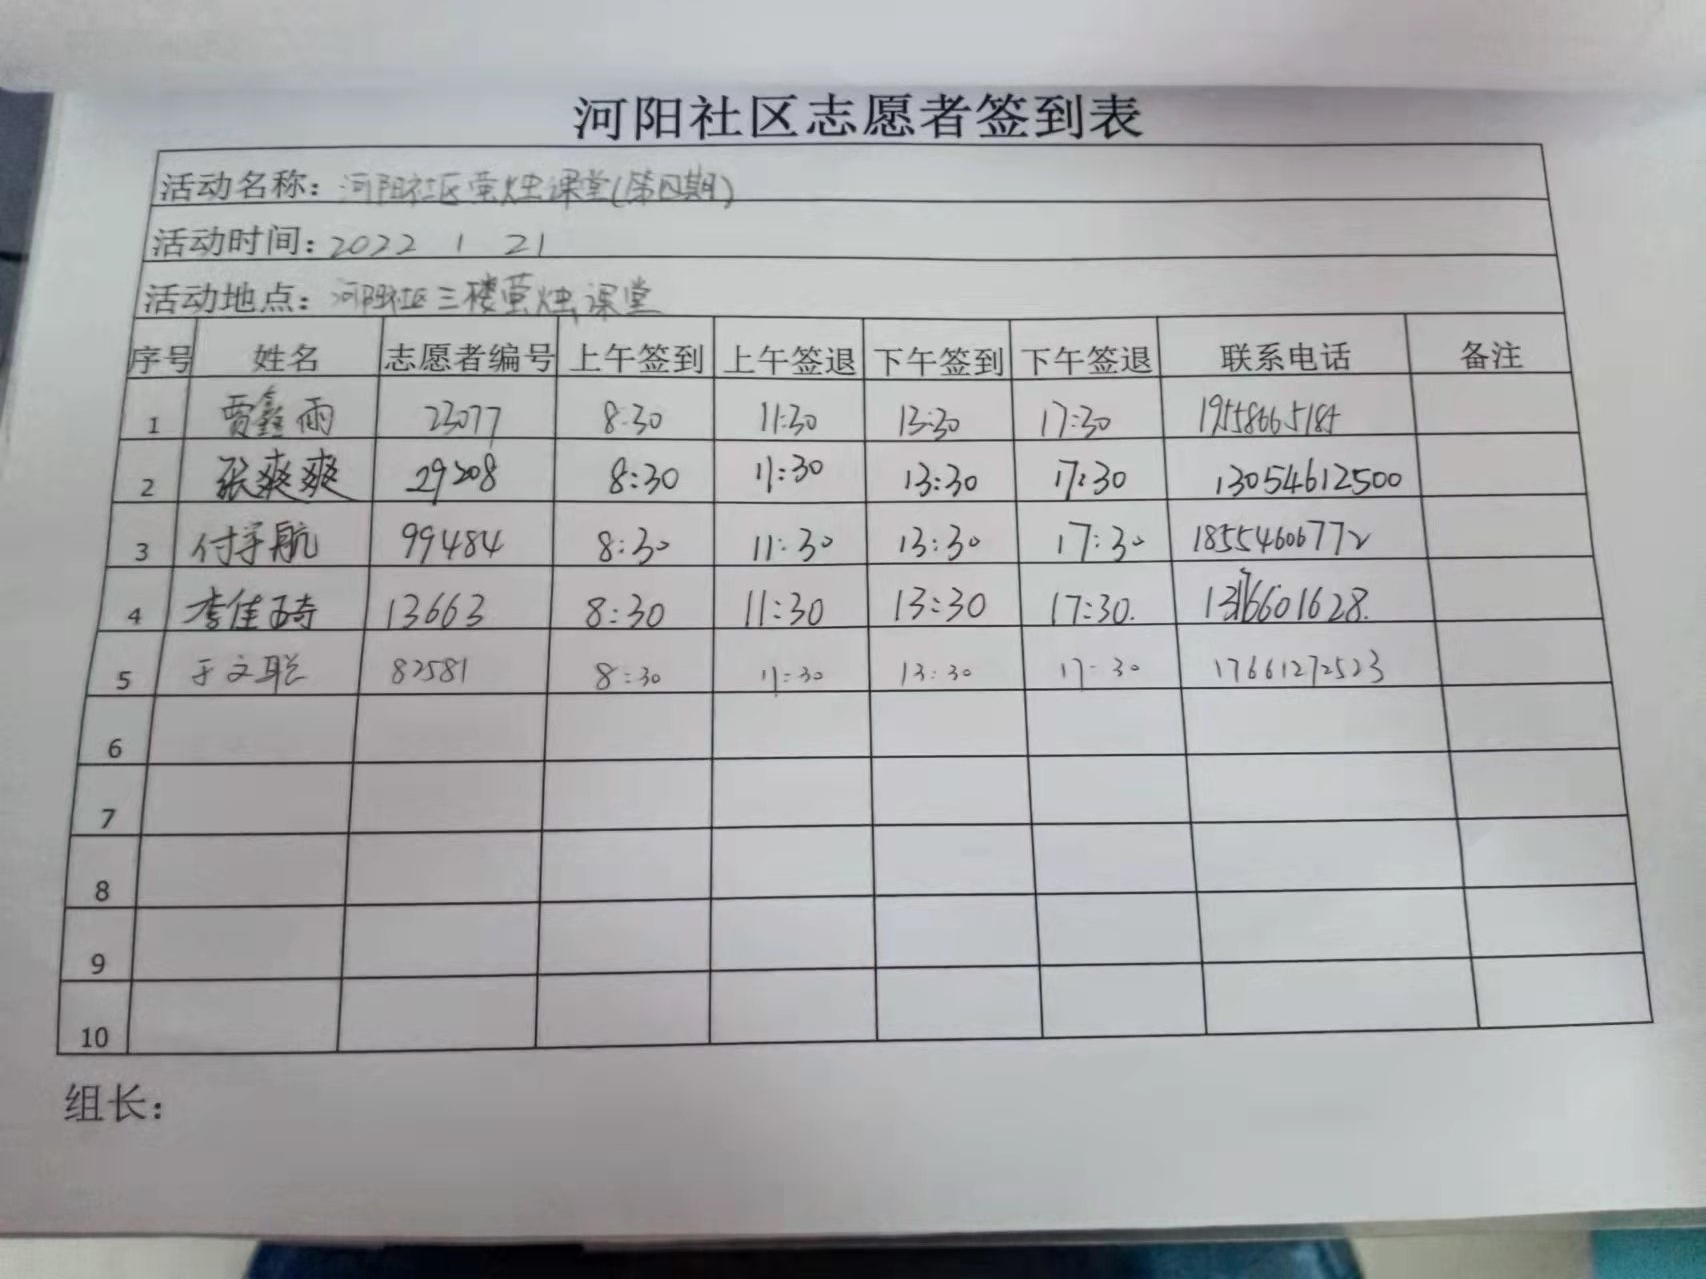 河阳社区志愿者签到表
活动名称：河阳社区萤烛课堂(第四期)
活动时间：2022 1 21
活动地点：河阳社区三楼萤烛课堂
序号 姓名 志愿者编号 上午签到 上午签退 下午签到 下午签退 联系电话 备注
1 贾鑫雨 23077 8:30 11:30 13:30 17:30 19558665185
2 张爽爽 29208 8:30 11:30 13:30 17:30 13054612500
3 付宇航 99484 8:30 11:30 13:30 17:30 18554606772
4 李佳琦 13663 8:30 11:30 13:30 17:30.
5 于文聪 82581 8:30 11:30 13:30 17:30 17661272523
6
7
8
9
10
组长：